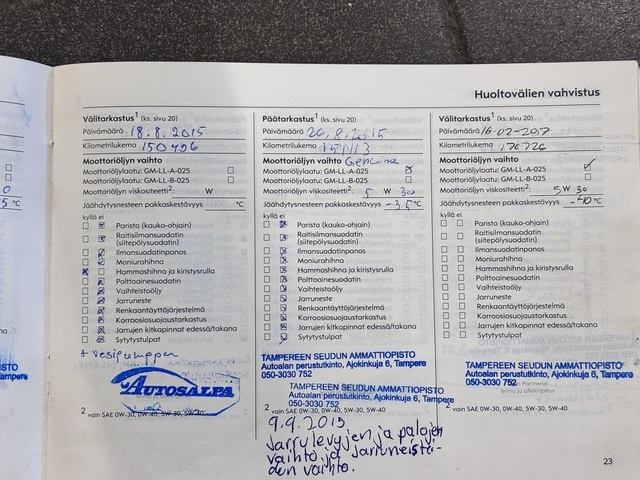 Huoltovälien vahvistus
Välitarkastus¹ (ks. sivu 20)
Päivämäärä 18.8.2015
Kilometrilukema 150496
Moottoriöljyn vaihto
Moottoriöljylaatu: GM-LL-A-025
Moottoriöljylaatu: GM-LL-B-025
Moottoriöljyn viskositeetti²: W
Jäähdytysnesteen pakkaskestävyys °C
kyllä ei
Paristo (kauko-ohjain)
Raitisilmansuodatin
(siitepölysuodatin)
Ilmansuodatinpanos
Moniurahihna
Hammashihna ja kiristysrulla
Polttoainesuodatin
Vaihteistoöljy
Jarruneste
Renkaantäyttöjärjestelmä
Korroosiosuojaustarkastus
Jarrujen kitkapinnat edessä/takana
Sytytystulpat
+ vesipumppu
AUTOSALPA
² vain SAE 0W-30, 0W-40, 5W-30, 5W-40
Päätarkastus¹ (ks. sivu 20)
Päivämäärä 26.8.2015
Kilometrilukema
Moottoriöljyn vaihto Genuine
Moottoriöljylaatu: GM-LL-A-025
Moottoriöljylaatu: GM-LL-B-025
Moottoriöljyn viskositeetti²: 5 W 30
Jäähdytysnesteen pakkaskestävyys -35 °C
kyllä ei
Paristo (kauko-ohjain)
Raitisilmansuodatin
(siitepölysuodatin)
Ilmansuodatinpanos
Moniurahihna
Hammashihna ja kiristysrulla
Polttoainesuodatin
Vaihteistoöljy
Jarruneste
Renkaantäyttöjärjestelmä
Korroosiosuojaustarkastus
Jarrujen kitkapinnat edessä/takana
Sytytystulpat
TAMPEREEN SEUDUN AMMATTIOPISTO
Autoalan perustutkinto, Ajokinkuja 6, Tampere
050-3030 752
TAMPEREEN SEUDUN AMMATTIOPISTO
Autoalan perustutkinto, Ajokinkuja 6, Tampere
050-3030 752
² vain SAE 0W-30, 0W-40, 5W-30, 5W-40
9.9.2015
Jarrulevyjen ja palojen
vaihto ja jarruneste-
den vaihto.
Välitarkastus¹ (ks. sivu 20)
Päivämäärä 16-02-2017
Kilometrilukema 170726
Moottoriöljyn vaihto
Moottoriöljylaatu: GM-LL-A-025
Moottoriöljylaatu: GM-LL-B-025
Moottoriöljyn viskositeetti²: 5 W 30
Jäähdytysnesteen pakkaskestävyys -40 °C
kyllä ei
Paristo (kauko-ohjain)
Raitisilmansuodatin
(siitepölysuodatin)
Ilmansuodatinpanos
Moniurahihna
Hammashihna ja kiristysrulla
Polttoainesuodatin
Vaihteistoöljy
Jarruneste
Renkaantäyttöjärjestelmä
Korroosiosuojaustarkastus
Jarrujen kitkapinnat edessä/takana
Sytytystulpat
TAMPEREEN SEUDUN AMMATTIOPISTO
Autoalan perustutkinto, Ajokinkuja 6, Tampere
050-3030 752
² vain SAE 0W-30, 0W-40, 5W-30, 5W-40
23